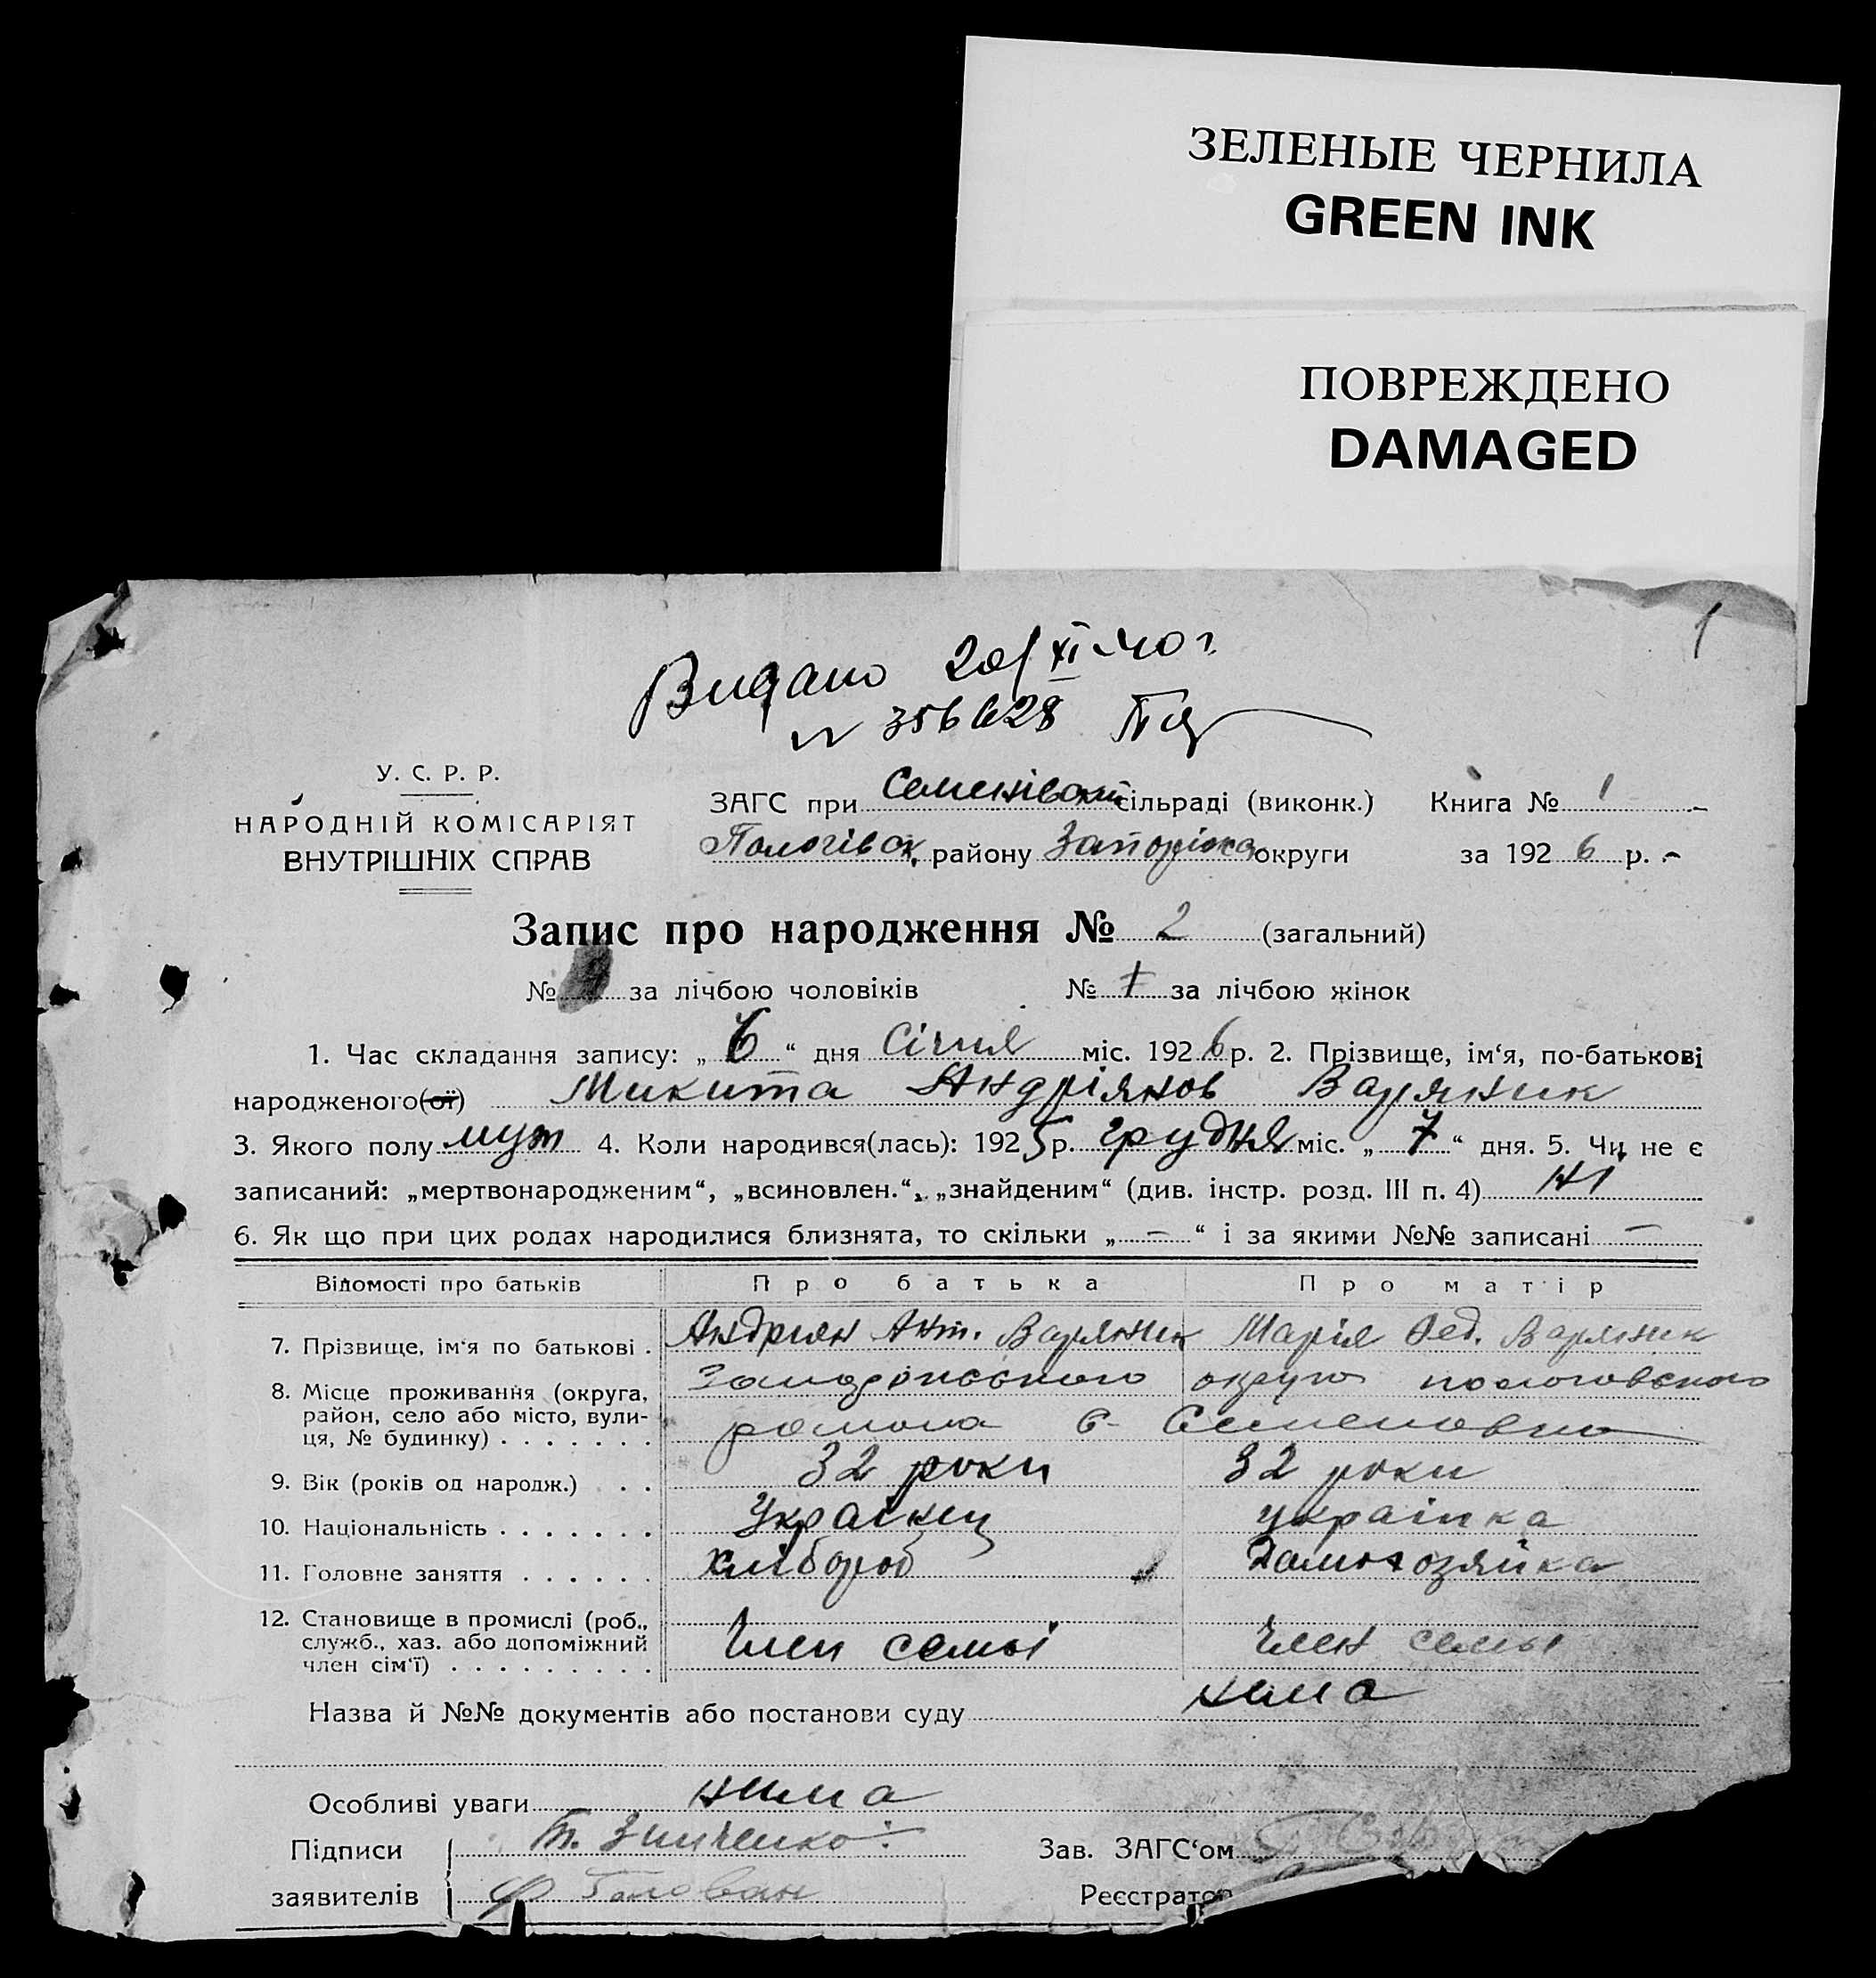 ЗЕЛЕНЫЕ ЧЕРНИЛА
GREEN INK
ПОВРЕЖДЕНО
DAMAGED
1
Видано 20/XI-40 г.
N 356628
У. С. Р. Р.
НАРОДНІЙ КОМІСАРІЯТ
ВНУТРІШНІХ СПРАВ
ЗАГС при Семенівській сільраді (виконк.) Книга № 1
Пологівск. району Запоріжс округи за 1926 р.
Запис про народження № 2 (загальний)
№ за лічбою чоловіків № 1 за лічбою жінок
1. Час складання запису: „6“ дня Січня міс. 1926 р. 2. Прізвище, ім‘я, по-батькові
народженого(ої) Микита Андріянов Варяник
3. Якого полу муж 4. Коли народився(лась): 1925 р. грудня міс. „7“ дня. 5. Чи не є
записаний: „мертвонародженим“, „всиновлен.“, „знайденим“ (див. інстр. розд. III п. 4) ні
6. Як що при цих родах народилися близнята, то скільки „ – “ і за якими №№ записані –
Відомості про батьків Про батька Про матір
7. Прізвище, ім‘я по батькові . Андриян Ант. Варяник Марія Фед. Варяник
8. Місце проживання (округа, район, село або місто, вулиця, № будинку) . . . . . . . Запоріжського округа пологовского
района с. Семеновка
9. Вік (років од народж.) . . 32 роки 32 роки
10. Національність . . . . . . . Україңец українка
11. Головне заняття . . . . . . хлібороб Домохозяйка
12. Становище в промислі (роб., служб., хаз. або допоміжний член сім‘ї) . . . . . . . . . Член семьі Член семьі
Назва й №№ документів або постанови суду нима
Особливі уваги нима
Підписи Т. Зинченко Зав. ЗАГС‘ом
заявителів Ф Голован Реєстратор